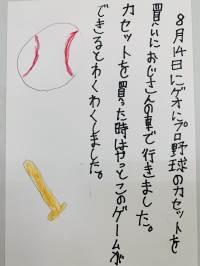 8月14日にゲオにプロ野球のカセットを
買いにおじさんの車で行きました。
カセットを買った時はやっとこのゲームが
できるとわくわくしました。